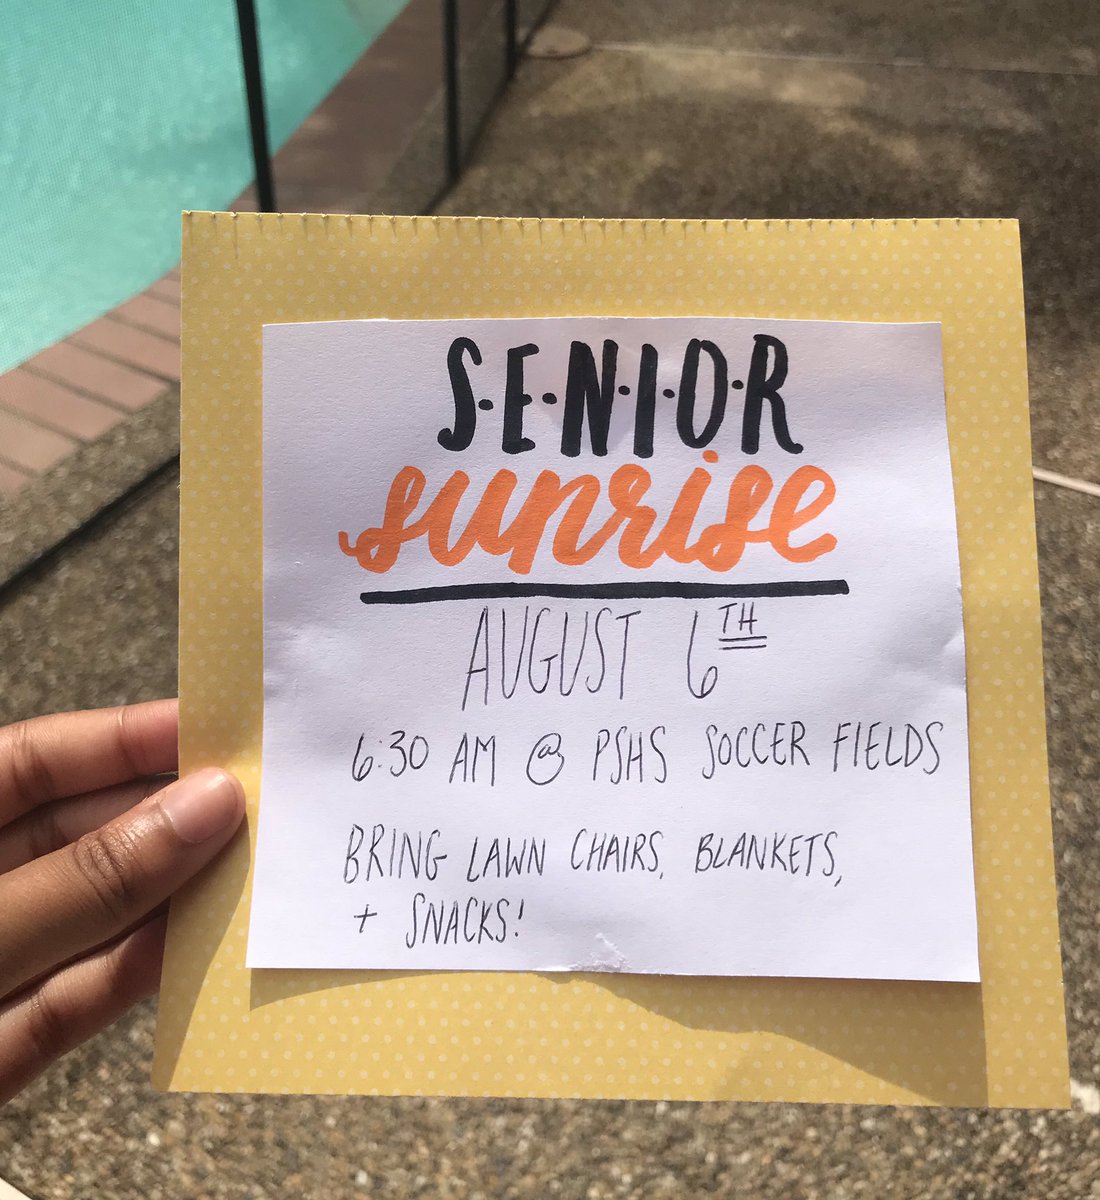 S·E·N·I·O·R
sunrise
AUGUST 6TH
6:30 AM @ PSHS SOCCER FIELDS
BRING LAWN CHAIRS, BLANKETS,
+ SNACKS!